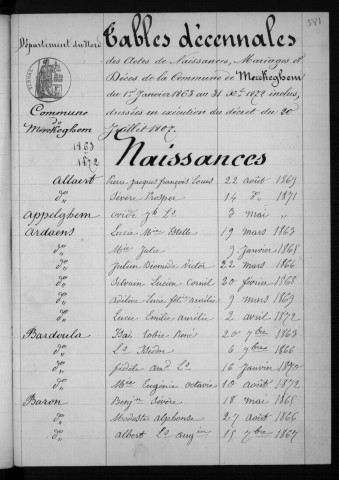 381
Département du Nord
Tables décennales
des Actes de Naissances, Mariages et
Décès de la Commune de Merckeghem
du 1er Janvier 1863 au 31 Xbre 1872 inclus,
dressées en exécution du décret du 20
Juillet 1807.
Commune
de
Merckeghem
1863
1872
Naissances
Allaert Pierre Jacques François Louis 22 août 1869
do Sévère Prosper 14 do 1871
Appelghem ovide Jh Ls 3 mai "
Ardaens Lucie Mie Estelle 19 mars 1863
do Mie Julie 9 Janvier 1865
do Julien Victor 22 mars 1866
do Sylvain Lucien Cornil 20 février 1868
do Adeline Lucie aurélie 9 mars 1869
do Lucie Emélie aurélie 2 août 1872
Bardoula Isaï René 20 7bre 1863
do Ls 6 9bre 1866
do fidèle Ls 16 Janvier 1870
do Mie Eugénie octavie 10 août 1872
Baron Benjin Sévère 18 mai 1865
do Modeste alphonse 27 août 1866
do albert Ls augin 15 7bre 1867